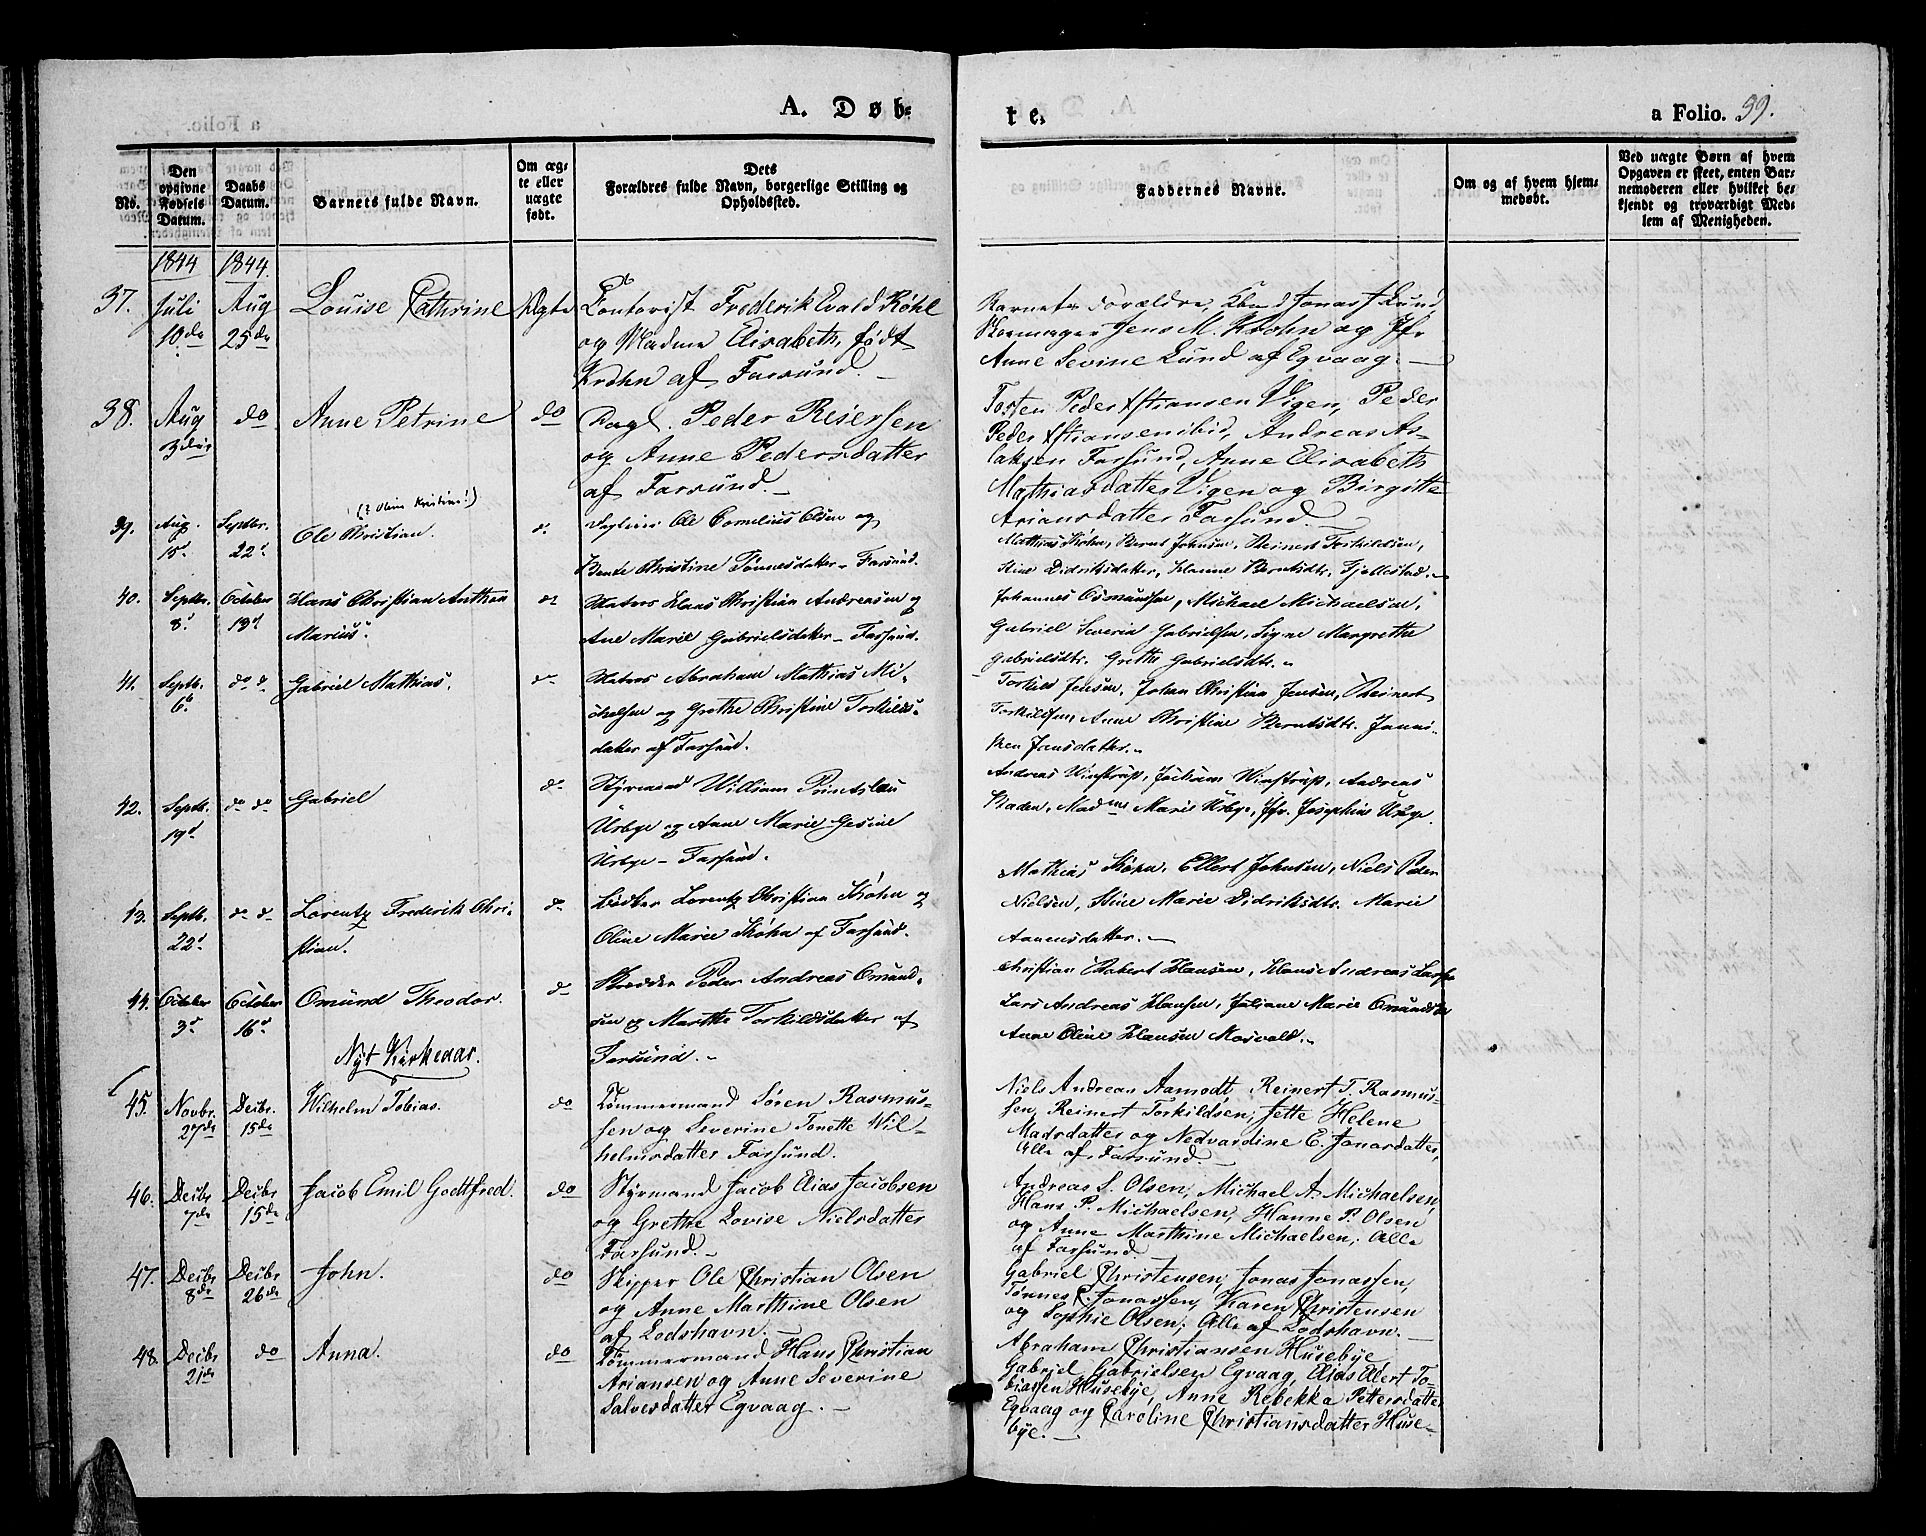 A. Døb-
te.
a Folio. 39.
No.
Den opgivne Fødsels Datum.
Daabs Datum.
Barnets fulde Navn.
Om ægte eller uægte født.
Dets Forældres fulde Navn, borgerlige Stilling og Opholdssted.
Faddernes Navne.
Om og af hvem hjemmedøbt.
Ved uægte Børn af hvem Opgaven er skeet, enten Barnemoderen eller hvilket bekjendt og troværdigt Medlem af Menigheden.
1844 1844.
37. Juli 10de
Aug 25de
Louise Cathrine
Ægte
Contorist Frederik Evald Röhl
og Madme Elisabeth, født
Krohn af Farsund.
Barnets Forældre, Kbmd Jonas J Lund,
Jens M. Krohn og Jfr
Anne Sevine Lund af Egvaag.
38. Aug 3die
do
Anne Petrine
do
Dagl. Peder Reiersen
og Anne Pedersdatter
af Farsund.
Tosten Peder Xstiansen Vigen, Peder
Peder Xstiansen ibid, Andreas As-
laksen Farsund, Anne Elisabeth
Mathiasdatter Vigen og Birgitte
Ariansdatter Farsund.
39. Aug. 15d
Septbr. 22d
(? Oline Kristine!)
Ole Christian.
do
Ole Cornelius Olsen og
Bente Christine Tönnesdatter - Farsund.
Mathias Köhn, Bernt Johnsen, Reinert Torkildsen,
Stine Didriksdatter, Hanne Berntsdtr. Fjellestad.
40. Septbr. 8d
October 13d
Hans Christian Anthon
Marius.
do
Matros Hans Christian Andreasen og
Ane Marie Gabrielsdatter - Farsund.
Johannes Osmundsen, Michael Michaelsen,
Gabriel Severin Gabrielsen, Signe Margrethe
Gabrielsdtr. Grethe Gabrielsdtr.
41. Septb. 6d
do do
Gabriel Mathias.
do
Matros Abraham Mathias Mi-
chelsen og Grethe Christine Torkilds-
datter af Farsund.
Torkild Jensen, Johan Christian Jensen, Reinert
Torkildsen, Anne Christine Berntsdtr. Janni-
ken Jansdatter.
42. Septb. 19d
do do
Gabriel
do
Styrmand William
Ursbye og Anne Marie Gesine
Ursbye - Farsund.
Andreas Winstrup, Jochum Winstrup, Andreas
Baden, Madme Marie Ursbye, Jfr. Josephine Ursbye.
13. Septb. 22d
do do
Lorentz Frederik Chri-
stian.
do
Bødker Lorentz Christian Köhn og
Oline Marie Köhn af Farsund.
Mathias Köhn, Ellert Johnsen, Niels Peder
Nielsen, Stine Marie Didriksdtr. Marie
Aanensdatter.
44. October 3d
October 16d
Omund Theodor.
do
Skrædder Peder Andreas Omund-
sen og Marthe Torkildsdatter af
Farsund.
Christian Robert Hansen, Hans Andreas
Lars Andreas Hansen, Juliane Marie
Anne Oline Hansen Mosvold.
Nyt Kirkeaar.
45. Novbr. 27de
Decbr. 15de
Wilhelm Tobias.
do
Tømmermand Søren Rasmus-
sen og Severine Tonette Wil-
helmsdatter Farsund.
Niels Andreas Aamodt, Reinert T. Rasmus-
sen, Reinert Torkildsen, Jette Helene
Madsdatter og Nedvardine E. Jonasdatter,
Alle af Farsund.
46. Decbr 7de
Decbr 15de
Jacob Emil Godtfred.
do
Styrmand Jacob Elias Jacobsen
og Grethe Lovise Nielsdatter
Farsund.
Andreas S. Olsen, Michael A. Michaelsen,
Hans P. Michaelsen, Hanne P. Olsen
og Anne Marthine Michaelsen, Alle
af Farsund.
47. Decbr 8de
Decbr 26de
John.
do
Skipper Ole Christian Olsen
og Anne Marthine Olsen
af Lodshavn.
Gabriel Christensen, Jonas Jonassen,
Tønnes C. Jonassen, Karen Christensen
og Sophie Olsen, Alle af Lodshavn.
48. Decbr 21de
do
Anna.
do
Tømmermand Hans Christian
Ariansen og Anne Severine
Salvesdatter Egvaag.
Abraham Christiansen Husebye
Gabriel Gabrielsen Egvaag, Elias Alert To-
biassen Husebye, Anne Rebekka Pettersdatter
Egvaag og Caroline Christiansdatter Huse-
bye.